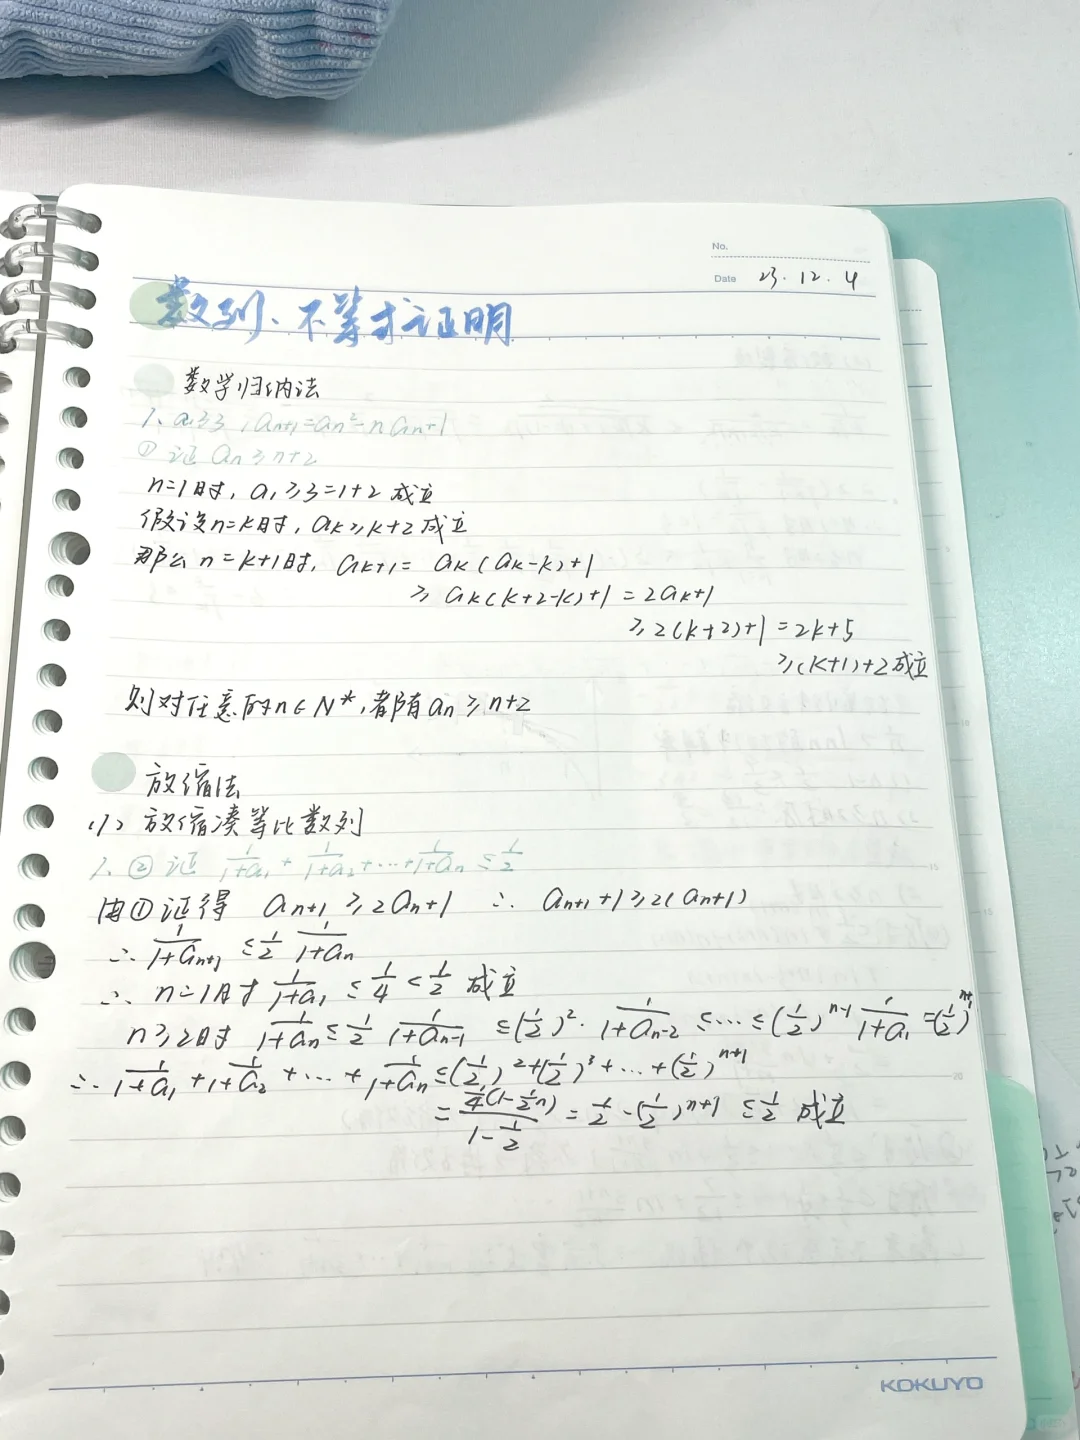 No.
Date 23.12.4
数列、不等式证明
数学归纳法
1、a₁≥3，aₙ₊₁=aₙ²-naₙ+1
① 证 aₙ≥n+2
n=1时，a₁≥3=1+2 成立
假设n=k时，aₖ≥k+2成立
那么 n=k+1时，aₖ₊₁= aₖ(aₖ-k)+1
≥ aₖ(k+2-k)+1 = 2aₖ+1
≥2(k+2)+1 =2k+5
≥(k+1)+2成立
则对任意的n∈N*，都有aₙ≥n+2
放缩法
(1) 放缩凑等比数列
1. ② 证 1/(1+a₁) + 1/(1+a₂) +…+ 1/(1+aₙ) ≤ 1/2
由①证得 aₙ₊₁≥2aₙ+1 ∴ aₙ₊₁+1≥2(aₙ+1)
∴ 1/(1+aₙ₊₁) ≤ 1/2 1/(1+aₙ)
∴ n=1时 1/(1+a₁) ≤ 1/4 < 1/2 成立
n≥2时 1/(1+aₙ) ≤ 1/2 1/(1+aₙ₋₁) ≤(1/2)²· 1/(1+aₙ₋₂) ≤…≤(1/2)ⁿ⁻¹ 1/(1+a₁) =(1/2)ⁿ⁺¹
∴ 1/(1+a₁) + 1/(1+a₂) +…+ 1/(1+aₙ) ≤(1/2)²+(1/2)³+…+(1/2)ⁿ⁺¹
= (1/4(1-1/2ⁿ))/(1-1/2) = 1/2 -(1/2)ⁿ⁺¹ ≤ 1/2 成立
KOKUYO